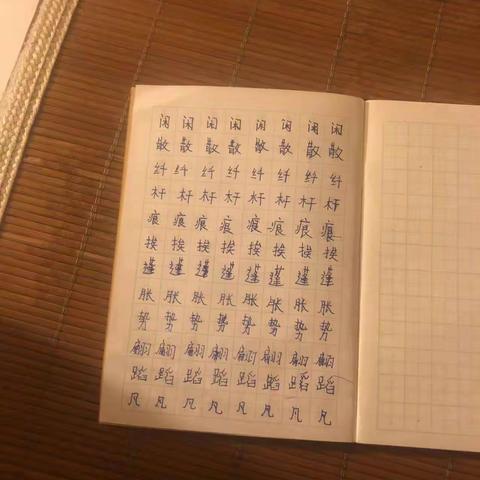 闲闲闲闲闲闲闲闲
散散散散散散散散
纤纤纤纤纤纤纤纤
杆杆杆杆杆杆杆杆
痕痕痕痕痕痕痕痕
挨挨挨挨挨挨挨挨
蓬蓬蓬蓬蓬蓬蓬蓬
胀胀胀胀胀胀胀胀
势势势势势势势势
翩翩翩翩翩翩翩翩
蹈蹈蹈蹈蹈蹈蹈蹈
凡凡凡凡凡凡凡凡